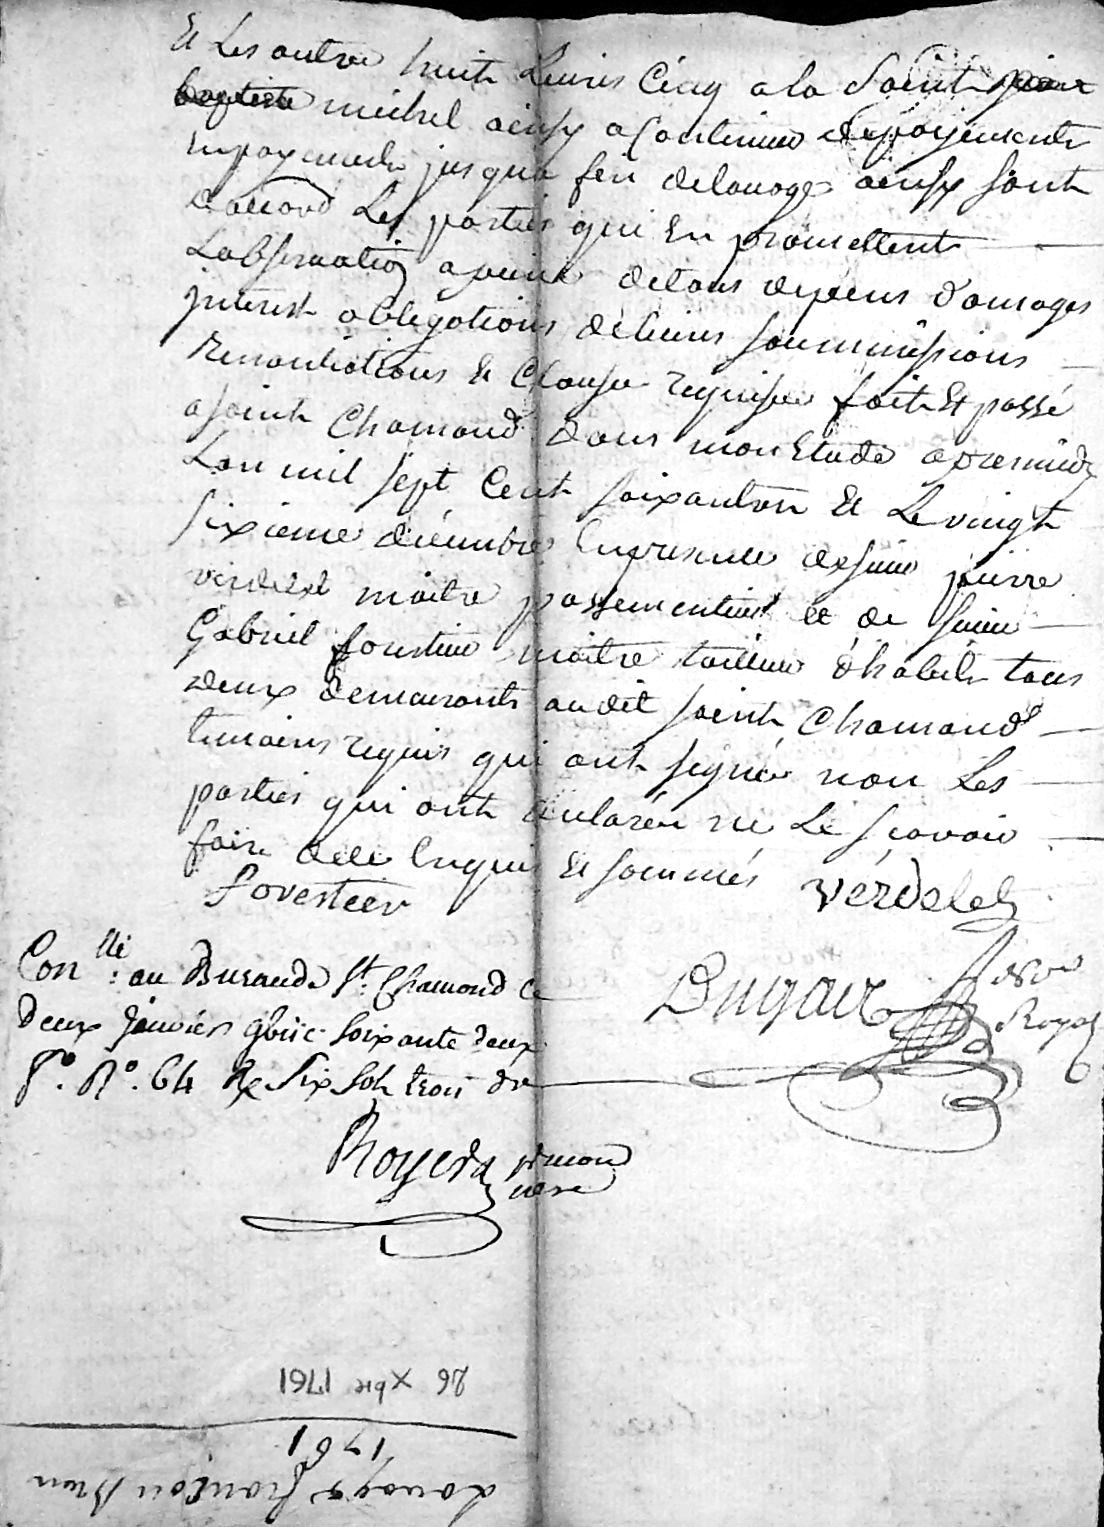 Et Les autre huit Livres Cinq a la Saint
michel ainsy a Continuer de payements
en payements jusqua fin delouage ainsy sont
daccord Les parties qui En promettent
Lobservation a peine de tous depens d'omages
jnterest obligations de biens soummissions
Renontiations & Clause requise fait Et passé
a saint Chamond dans mon Etude apres midy
Lan mil sept Cent soixante un Et Le vingt
sixieme décembre En presence de sieur piérre
verdelet maitre passementier et de sieur
Gabriel forestier maitre tailleur d'habits tous
deux demeurants au dit saint Chamond
temoins requis qui ont signé non Les
parties qui ont déclarés ne Le scavoir
faire de ce Enquis Et sommés
forestier verdelet
Con.lé au Bureau de St. Chamond Ce
Deux Janvier soixante deux
f.° R.° 64 Rx Six Sols trois drs
Dugait Nore Royal
Royer
26 Xbre 1761
1761
Louage françois Brun